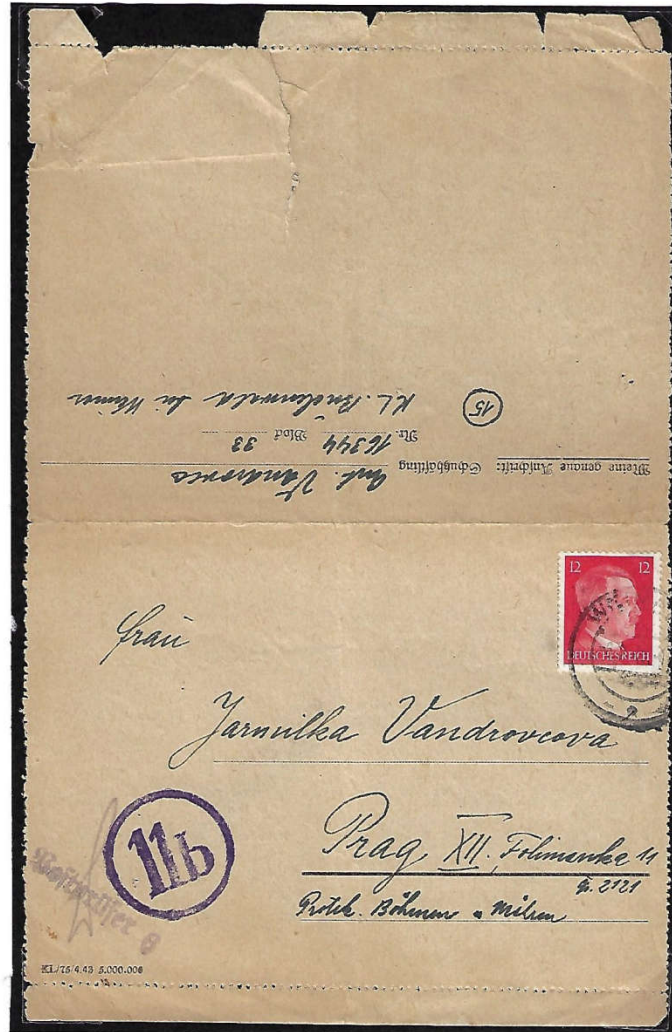 Meine genaue Anschrift:
Schutzhäftling
Ant. Vandrovec
Nr. 16344 Block 33
KL. Buchenwald bei Weimar
15
12 12
DEUTSCHES REICH
Frau
Jarmilka Vandrovcova
Prag XII. Folimanka 11
Protek. Böhmen u Mähren
11b
Postprüfer
KL/75/4.43 5.000.000